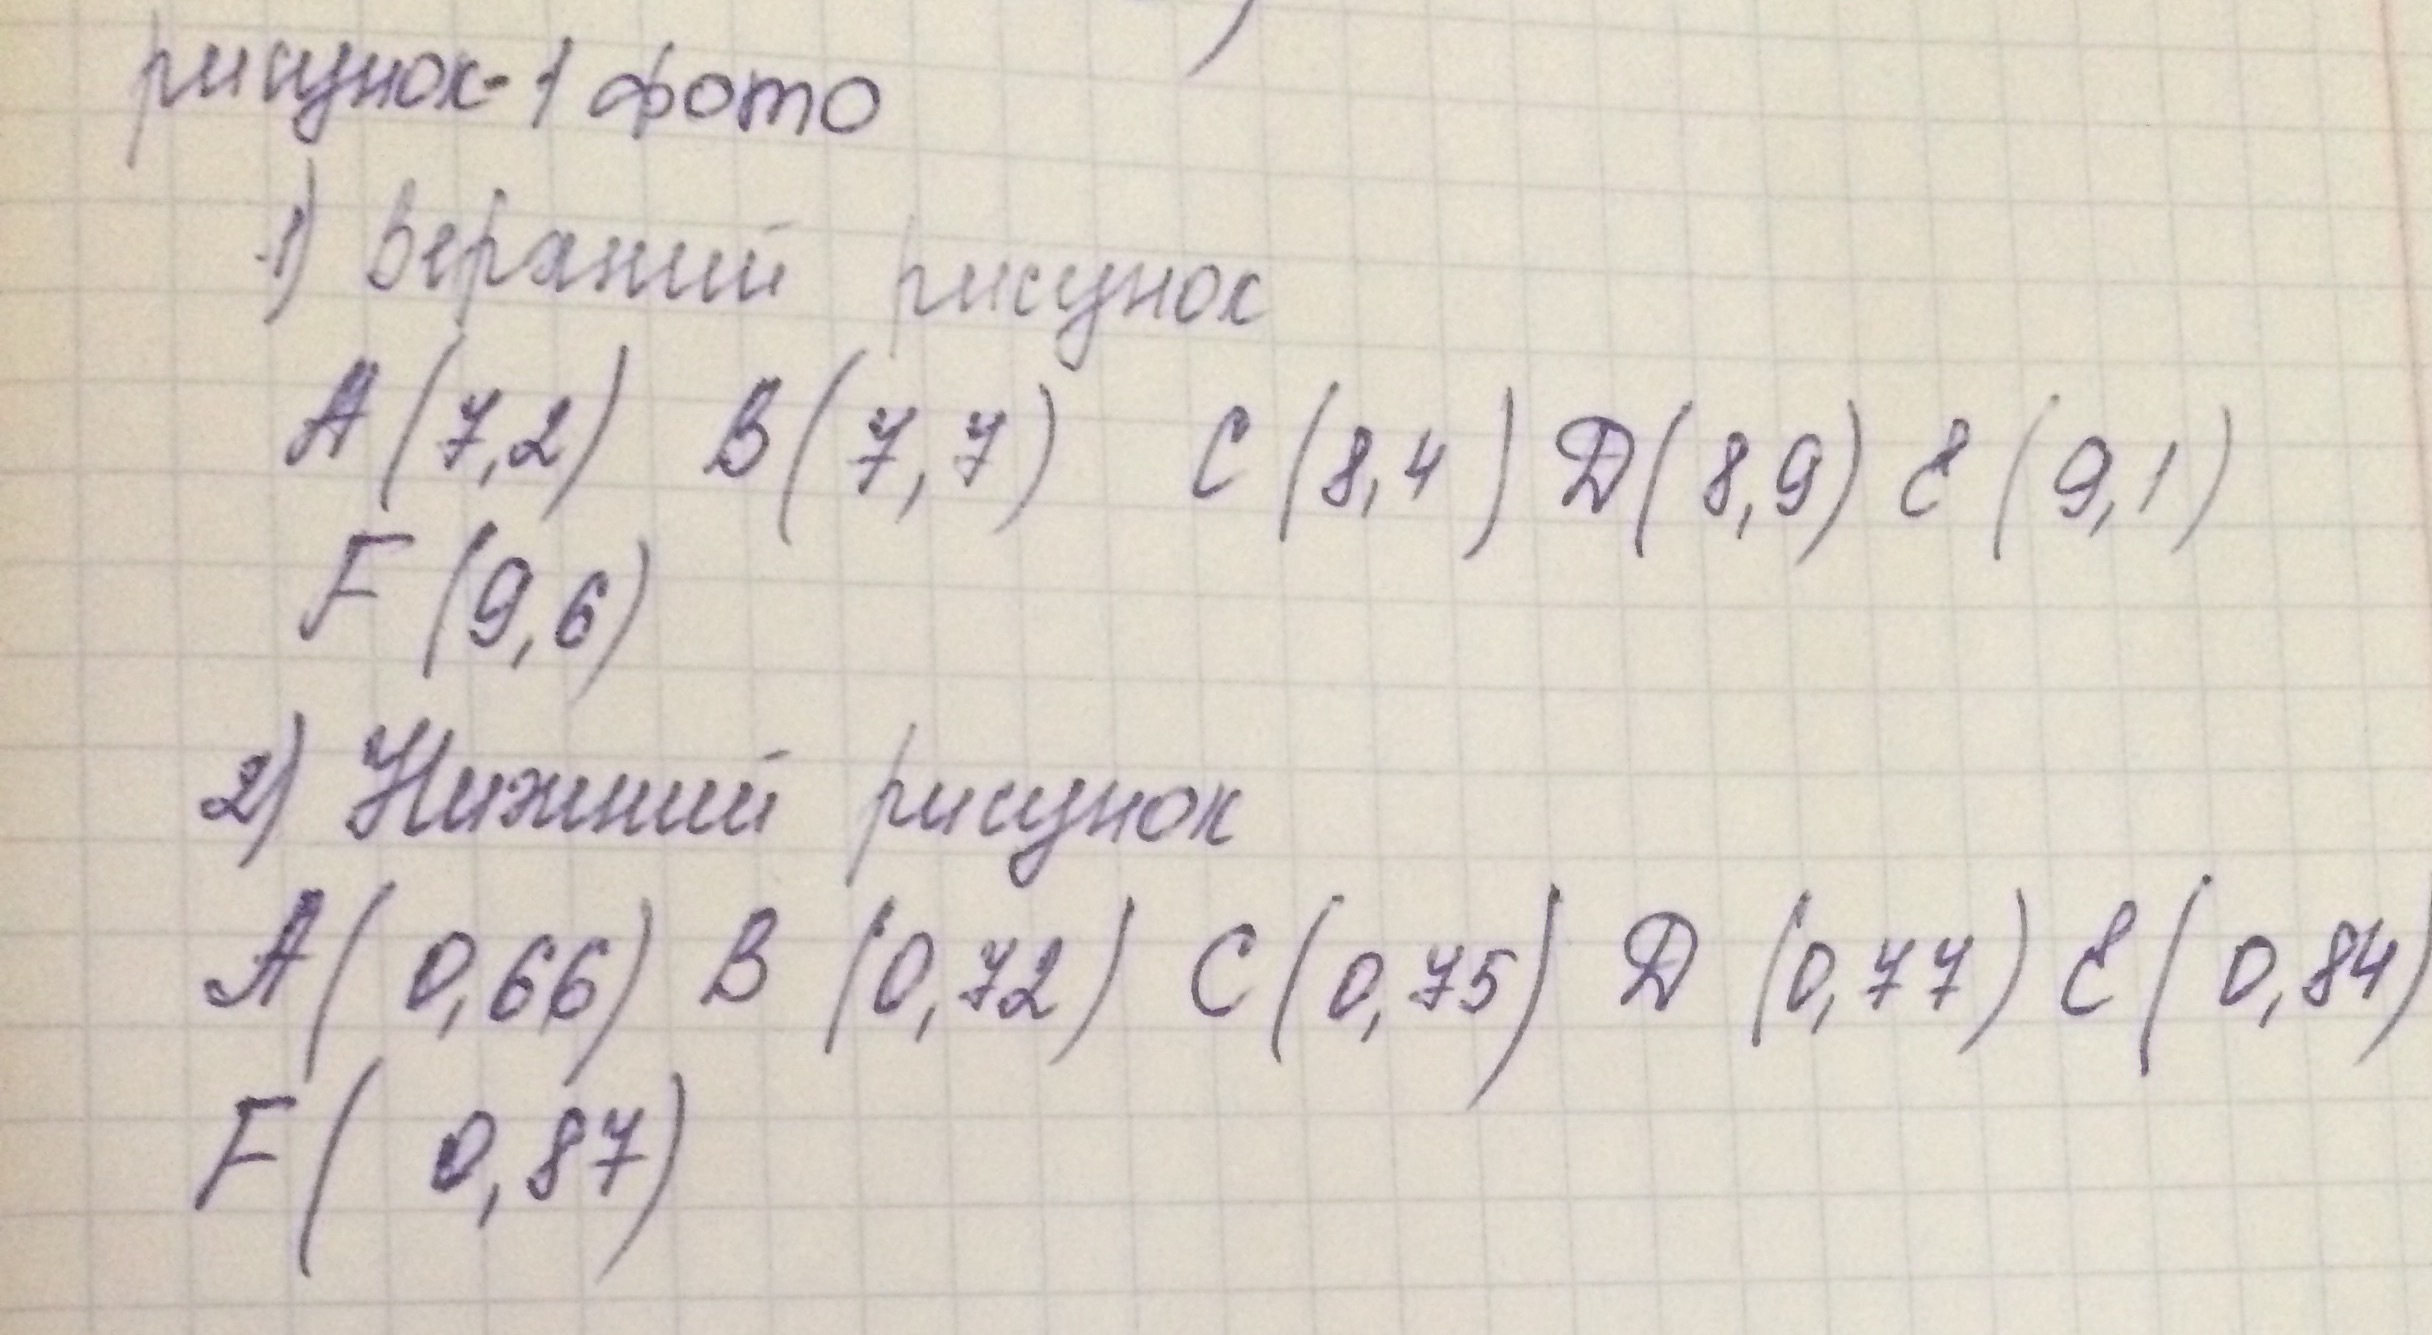 рисунок-1 фото
1) Верхний рисунок
A (7,2) B (7,7) C (8,4) D (8,9) E (9,1)
F (9,6)
2) Нижний рисунок
A (0,66) B (0,72) C (0,75) D (0,77) E (0,84)
F (0,87)